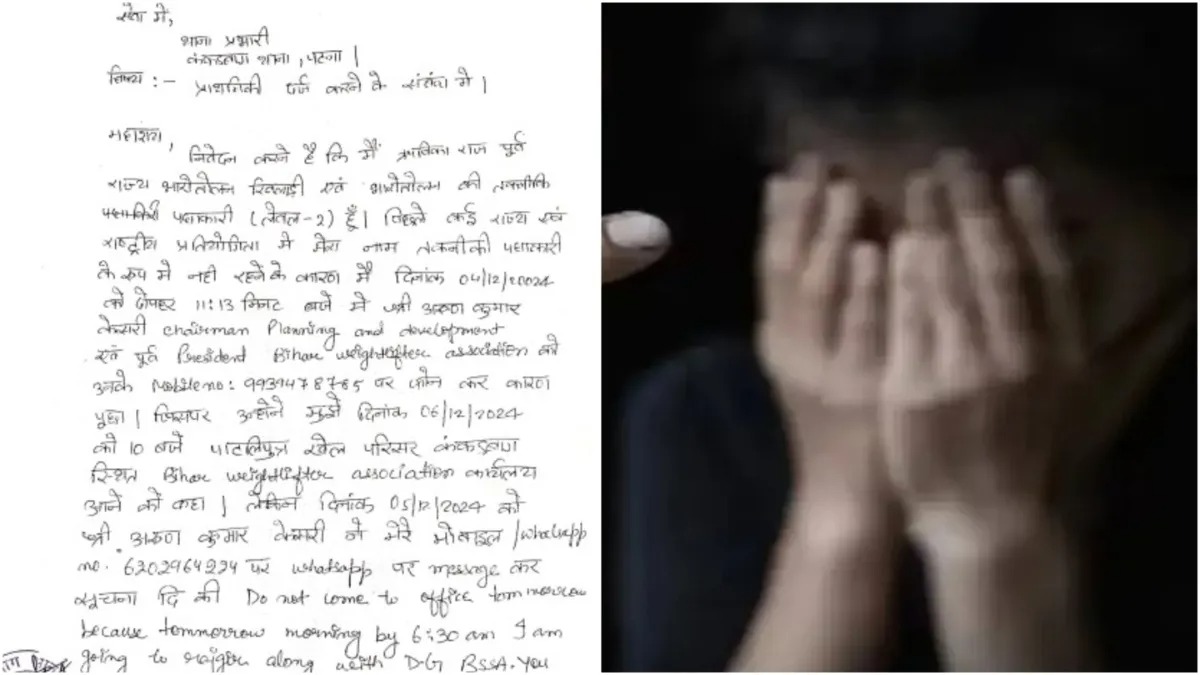 सेवा में,
थाना प्रभारी
कंकड़बाग थाना, पटना |
विषय :- प्राथमिकी दर्ज करने के संबंध में |
महाशय,
निवेदन करने है कि मैं राज पूर्व
राज्य भारोतोलन खिलाड़ी एवं भारोतोलन की तकनीकि
पदाधिकारी (लेवल-2) हूँ | पिछले कई राज्य एवं
राष्ट्रीय प्रतियोगिता में मेरा नाम तकनीकी पदाधकारी
के रूप में नही रहने के कारण मैं दिनांक 04/12/20024
को दोपहर 11:13 मिनट बजे में श्री अरुण कुमार
केसरी Chairman Planning and development
एवं पूर्व President Bihar weightlifter association को
उनके Mobile no: 9939478765 पर फोन कर कारण
पूछा | जिसपर उन्होने मुझे दिनांक 06/12/2024
को 10 बजे पाटलिपुत्र खेल परिसर कंकड़बाग
स्थित Bihar weightlifter association कार्यालय
आने को कहा | लेकिन दिनांक 05/12/2024 को
श्री अरुण कुमार केसरी ने मेरे मोबाइल /whatsapp
no. 6202964224 पर whatsapp पर message कर
सूचना दि की Do not come to office tommorrow
because tommorrow morning by 6:30 am I am
going to rajgir along with D.G BSSA. You